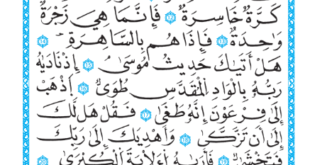 كَرَّةٌ خَاسِرَةٌ ﴿١٢﴾ فَإِنَّمَا هِيَ زَجْرَةٌ
وَاحِدَةٌ ﴿١٣﴾ فَإِذَا هُم بِالسَّاهِرَةِ ﴿١٤﴾
هَلْ أَتَيٰكَ حَدِيثُ مُوسَىٰ ﴿١٥﴾ إِذْ نَادَيٰهُ
رَبُّهُ بِالْوَادِ الْمُقَدَّسِ طُوًى ﴿١٦﴾ اِذْهَبْ
إِلَى فِرْعَوْنَ إِنَّهُ طَغَىٰ ﴿١٧﴾ فَقُلْ هَل لَّكَ
إِلَى أَن تَزَّكَّىٰ ﴿١٨﴾ وَأَهْدِيَكَ إِلَى رَبِّكَ
فَتَخْشَىٰ ﴿١٩﴾ فَأَرَيٰهُ الْأَيَةَ الْكُبْرَىٰ